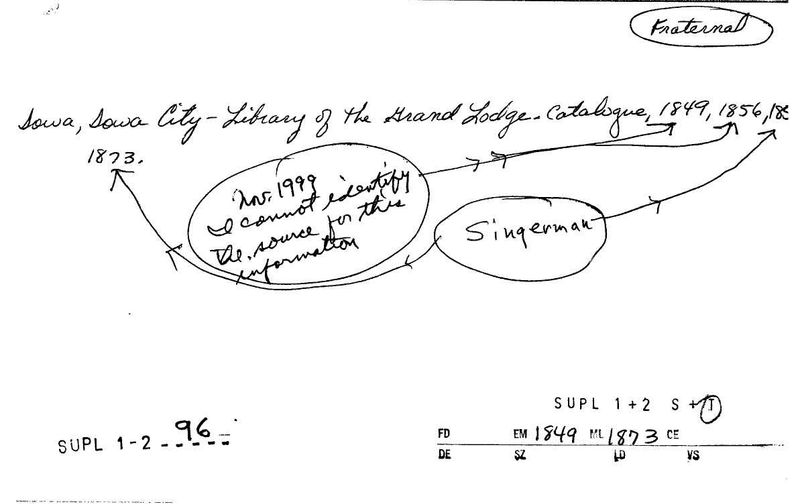 Fraternal
Iowa, Iowa City - Library of the Grand Lodge - Catalogue, 1849, 1856, 18
1873.
Nov. 1999
I cannot identify
the source for this
information
Singerman
SUPL 1+2 S+T
SUPL 1-2 96
FD EM 1849 ML 1873 CE
DE SZ LD VS